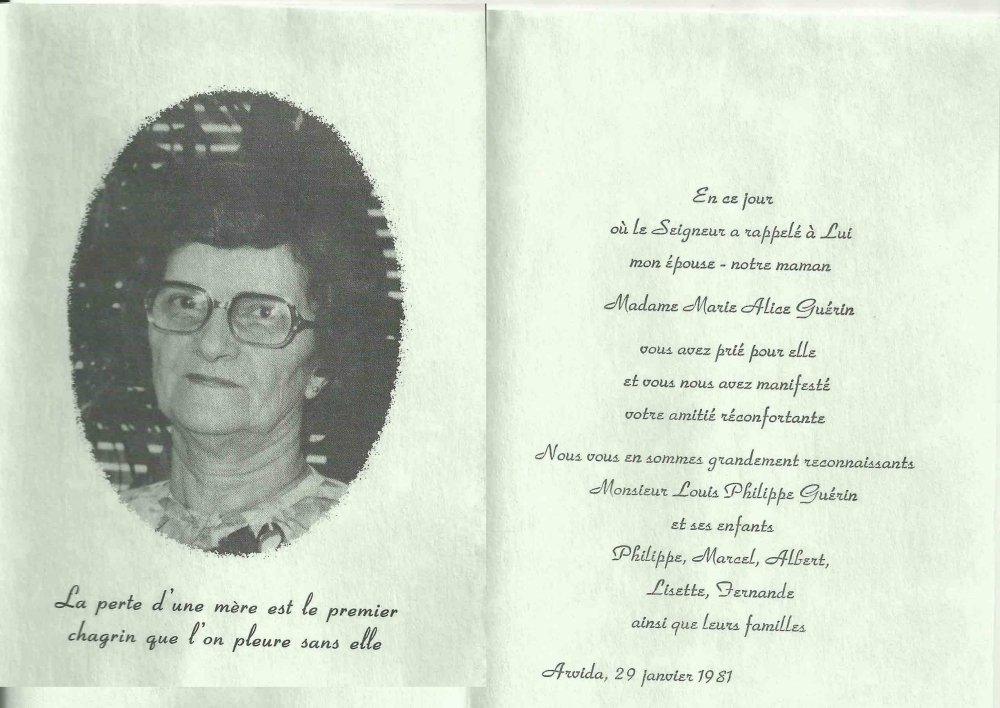 La perte d'une mère est le premier
chagrin que l'on pleure sans elle
En ce jour
où le Seigneur a rappelé à Lui
mon épouse - notre maman
Madame Marie Alice Guérin
vous avez prié pour elle
et vous nous avez manifesté
votre amitié réconfortante
Nous vous en sommes grandement reconnaissants
Monsieur Louis Philippe Guérin
et ses enfants
Philippe, Marcel, Albert,
Lisette, Fernande
ainsi que leurs familles
Arvida, 29 janvier 1981